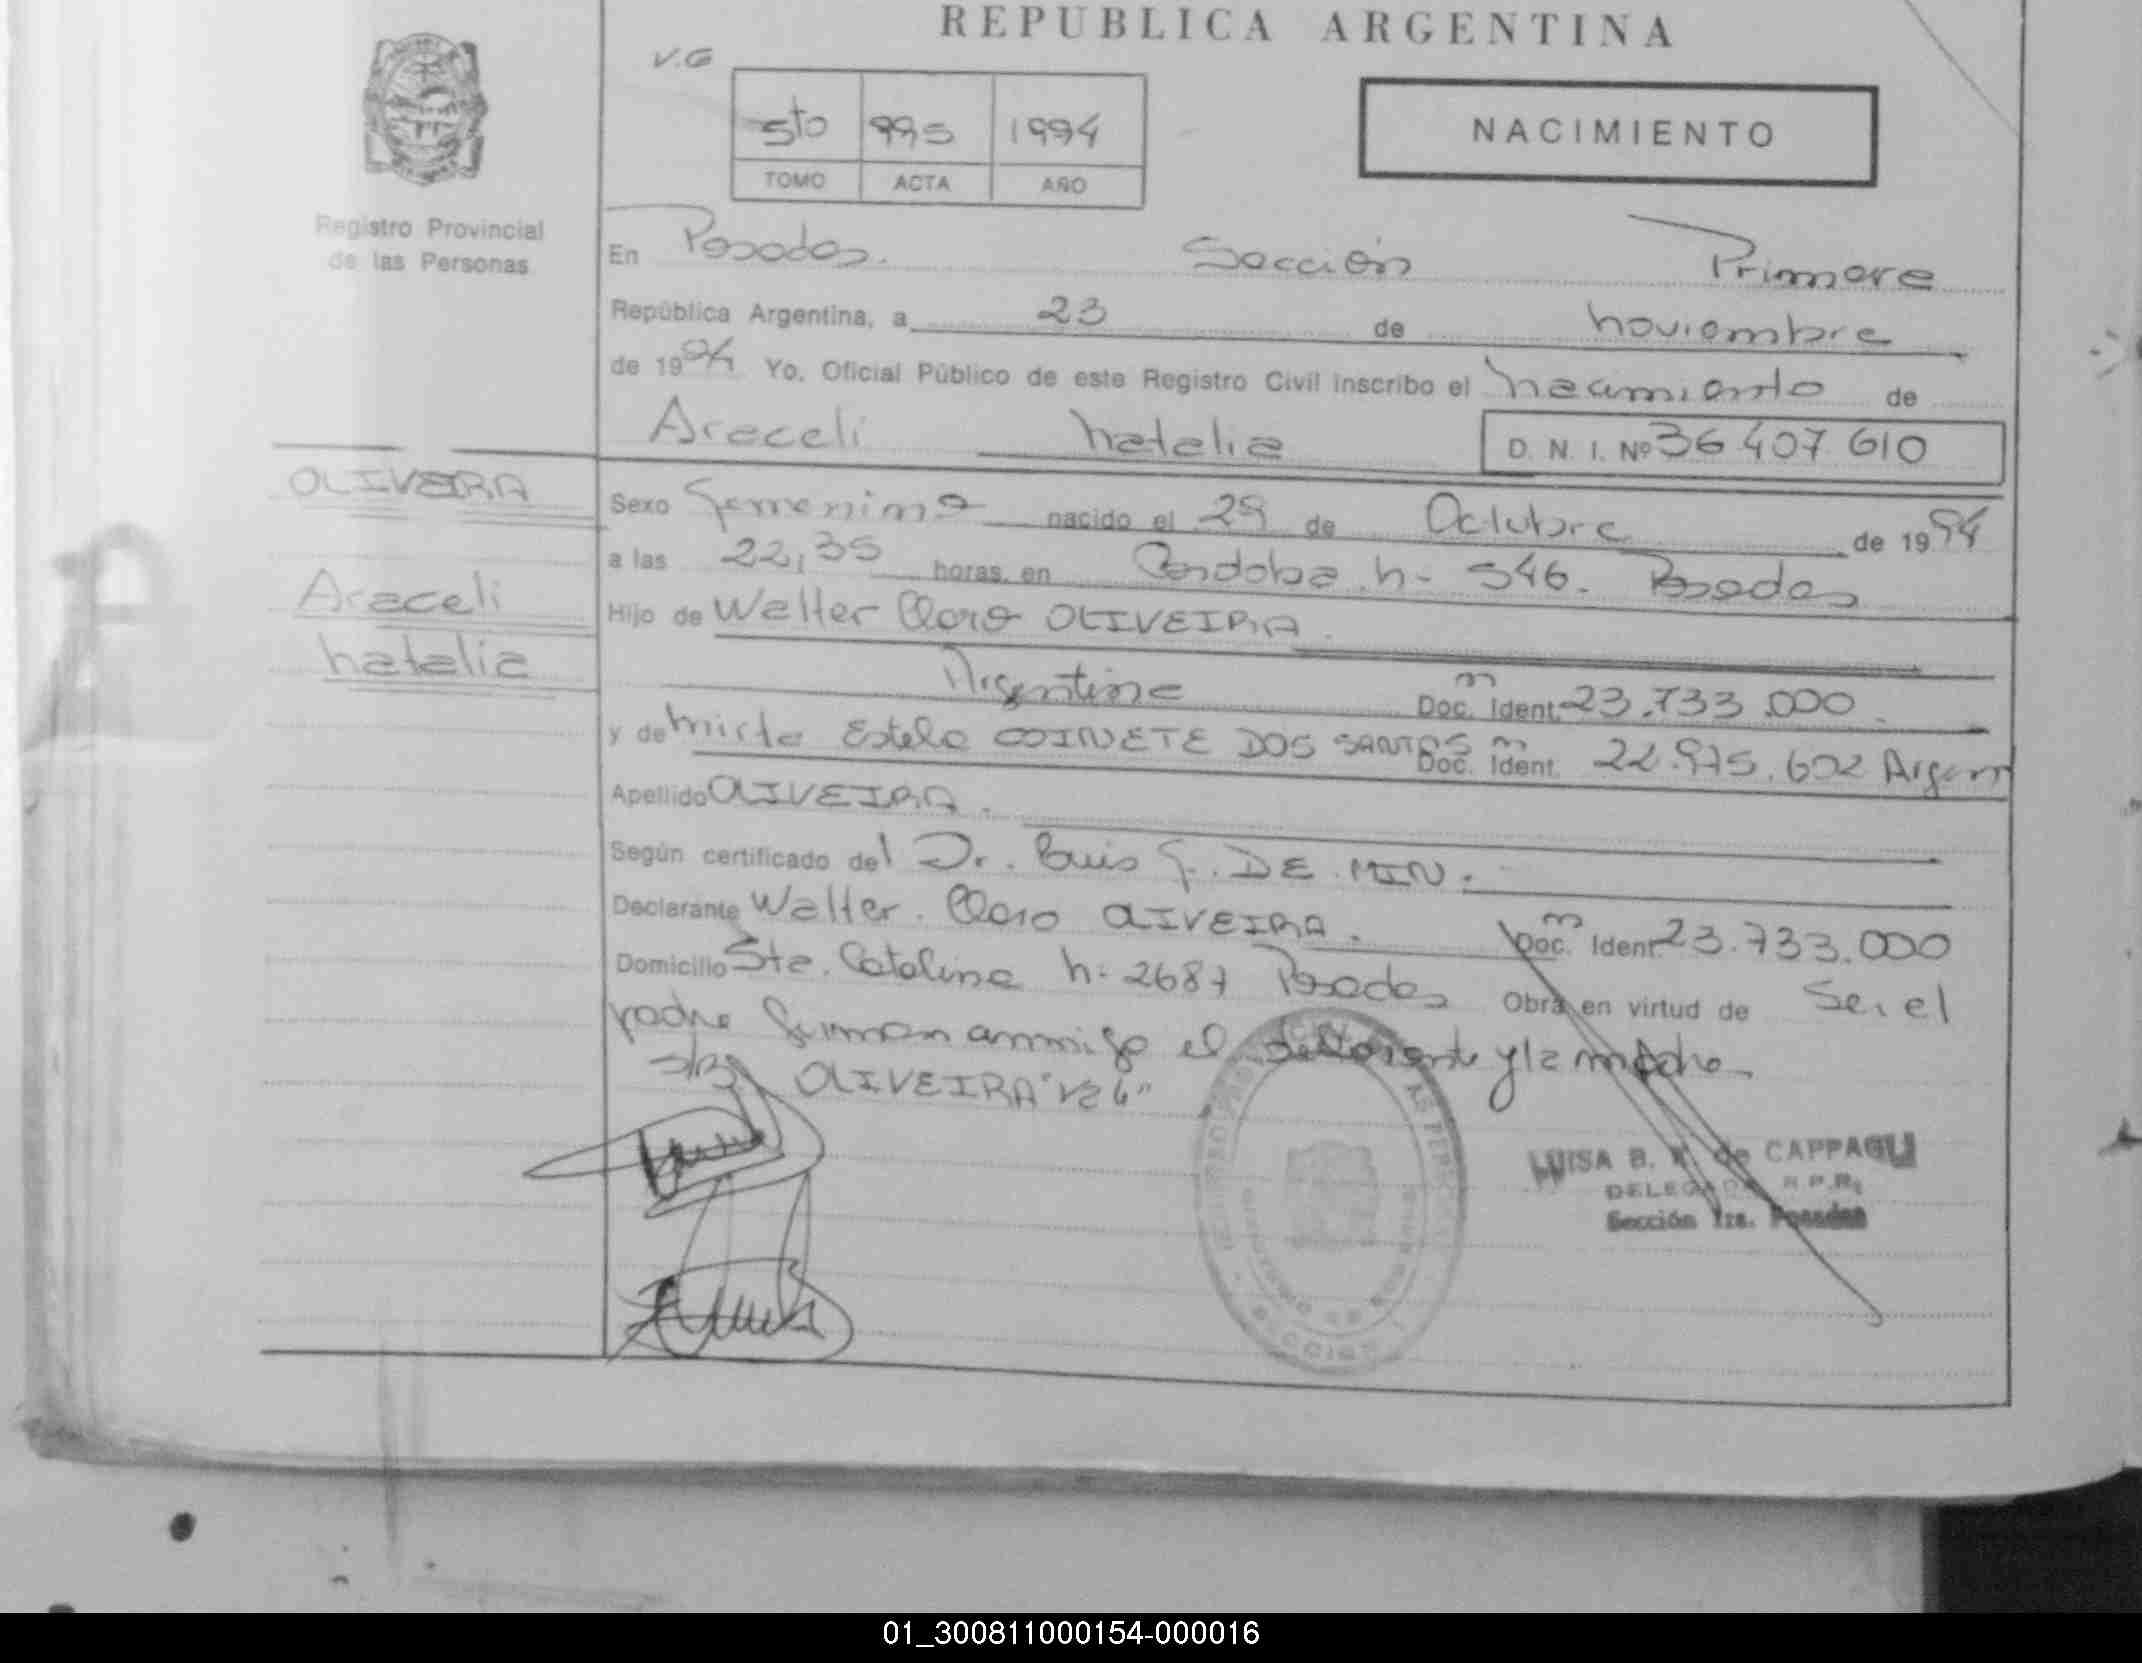 REPUBLICA ARGENTINA
V.G
5to 995 1994
TOMO ACTA AÑO
NACIMIENTO
Registro Provincial
de las Personas
En Posadas. Sección Primera
República Argentina, a 23 de noviembre
de 1994 Yo, Oficial Público de este Registro Civil inscribo el nacimiento de
Araceli Natalia D. N. I. Nº 36 407 610
OLIVEIRA
Araceli
Natalia
Sexo Femenino nacido el 29 de Octubre de 1994
a las 22,35 horas, en Cordoba N- 546. Posadas
Hijo de Walter Claro OLIVEIRA.
Argentina Doc. Ident. 23.733.000.
y de Mirta Estela DOS SANTOS Doc. Ident. 22.975.602 Argent
Apellido OLIVEIRA.
Según certificado del Dr. Luis F. DE MIN.
Declarante Walter. Claro OLIVEIRA. Doc. Ident. 23.733.000
Domicilio Sta. Catalina N- 2687 Posadas Obra en virtud de Ser el
padre firman conmigo el declarante y la madre
OLIVEIRA "Vale"
LUISA B. de CAPPAGLI
DELEGADA R.P.P.
Sección 1ra. Posadas
01_300811000154-000016